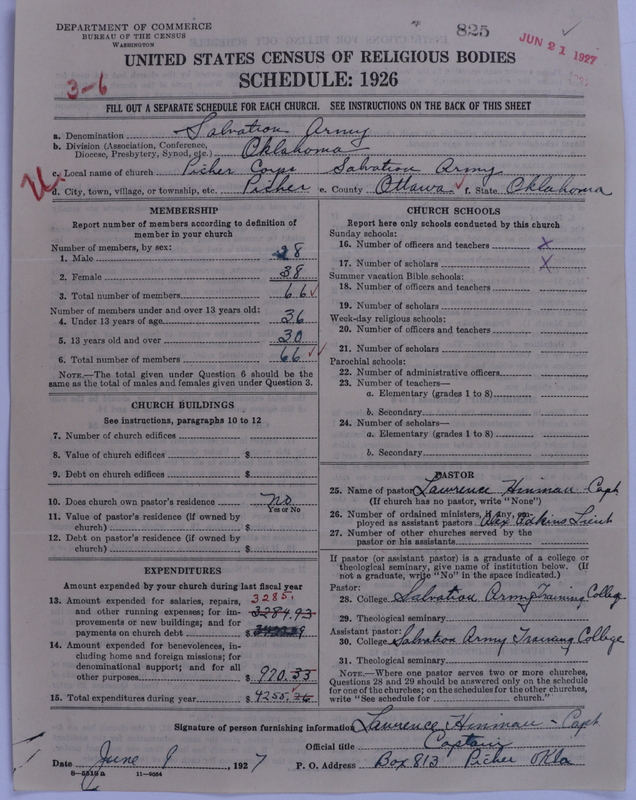 DEPARTMENT OF COMMERCE
BUREAU OF THE CENSUS
WASHINGTON
825
JUN 21 1927
UNITED STATES CENSUS OF RELIGIOUS BODIES
SCHEDULE: 1926
3-6
FILL OUT A SEPARATE SCHEDULE FOR EACH CHURCH. SEE INSTRUCTIONS ON THE BACK OF THIS SHEET
a. Denomination Salvation Army
b. Division (Association, Conference, Diocese, Presbytery, Synod, etc.) Oklahoma
c. Local name of church Picher Corps Salvation Army
d. City, town, village, or township, etc. Picher e. County Ottawa f. State Oklahoma
MEMBERSHIP
Report number of members according to definition of member in your church
Number of members, by sex:
1. Male 28
2. Female 38
3. Total number of members 66
Number of members under and over 13 years old:
4. Under 13 years of age 36
5. 13 years old and over 30
6. Total number of members 66
NOTE.—The total given under Question 6 should be the same as the total of males and females given under Question 3.
CHURCH BUILDINGS
See instructions, paragraphs 10 to 12
7. Number of church edifices
8. Value of church edifices $
9. Debt on church edifices $
10. Does church own pastor's residence No
Yes or No
11. Value of pastor's residence (if owned by church) $
12. Debt on pastor's residence (if owned by church) $
EXPENDITURES
Amount expended by your church during last fiscal year
13. Amount expended for salaries, repairs, and other running expenses; for improvements or new buildings; and for payments on church debt $ 3285. 3284.93
14. Amount expended for benevolences, including home and foreign missions; for denominational support; and for all other purposes $ 970.33
15. Total expenditures during year $ 4255.26
CHURCH SCHOOLS
Report here only schools conducted by this church
Sunday schools:
16. Number of officers and teachers X
17. Number of scholars X
Summer vacation Bible schools:
18. Number of officers and teachers
19. Number of scholars
Week-day religious schools:
20. Number of officers and teachers
21. Number of scholars
Parochial schools:
22. Number of administrative officers
23. Number of teachers—
a. Elementary (grades 1 to 8)
b. Secondary
24. Number of scholars—
a. Elementary (grades 1 to 8)
b. Secondary
PASTOR
25. Name of pastor Lawrence Hinman - Capt
(If church has no pastor, write "None")
26. Number of ordained ministers, if any, employed as assistant pastors Alex Adkins Lieut
27. Number of other churches served by the pastor or his assistants
If pastor (or assistant pastor) is a graduate of a college or theological seminary, give name of institution below. (If not a graduate, write "No" in the space indicated.)
Pastor:
28. College Salvation Army Training College
29. Theological seminary
Assistant pastor:
30. College Salvation Army Training College
31. Theological seminary
NOTE.—Where one pastor serves two or more churches, Questions 28 and 29 should be answered only on the schedule for one of the churches; on the schedules for the other churches, write "See schedule for church."
Signature of person furnishing information Lawrence Hinman - Capt
Official title Captain
Date June 9, 1927 P. O. Address Box 813 Picher Okla
11-9064